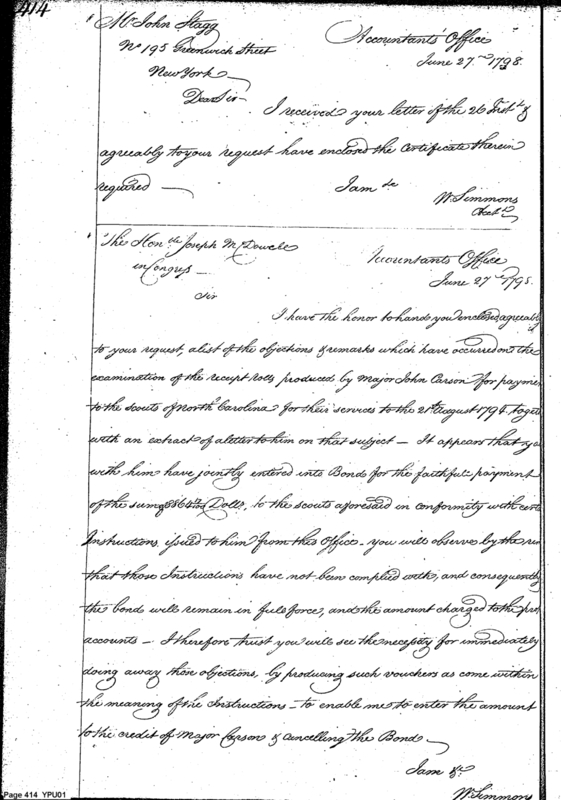 414
Mr John Stagg
No 195 Greenwich Street
New York
Accountants Office
June 27. 1798.
Dear Sir
I received your letter of the 26 Inst. &
agreeably to your request have enclosed the Certificate therein
required
I am &c
W. Simmons
Acct.
The Honble Joseph McDowell
in Congress
Accountants Office
June 27 1798.
Sir
I have the honor to hand you enclosed, agreeably
to your request, a list of the objections & remarks which have occurred on the
examination of the receipt rolls produced by Major John Carson for paymen
to the scouts of North Carolina for their services to the 21st August 1794. togeth
with an extract of a letter to him on that subject - It appears that y
with him have jointly entered into Bond for the faithful payment
of the sum of Dolls, to the scouts aforesaid in conformity with cert
Instructions, issued to him from this Office - you will observe by the re
that those Instructions have not been complied with, and consequently
the bond will remain in full force, and the amount charged to the
accounts - I therefore trust you will see the necessity for immediately
doing away those objections, by producing such vouchers as come within
the meaning of the Instructions - to enable me to enter the amount
to the credit of Major Carson & cancelling the Bond
I am &c
W. Simmons
Page 414 YPU01